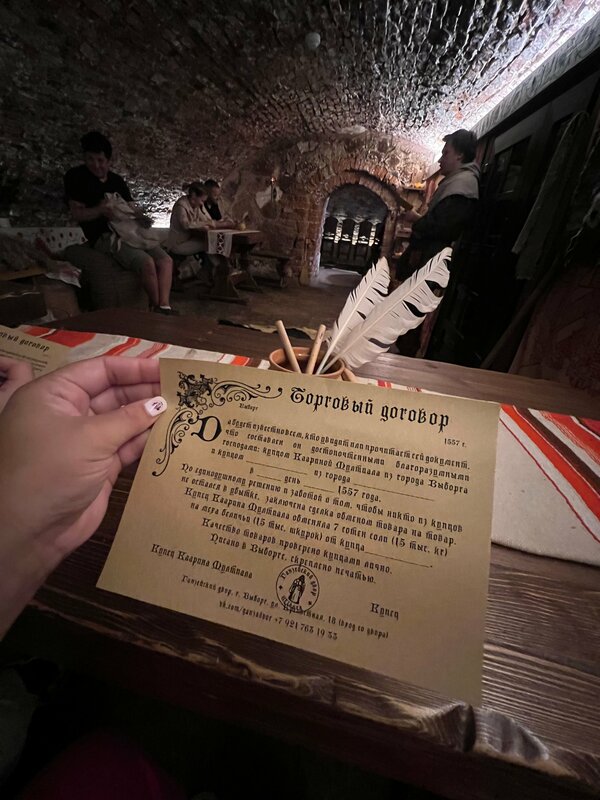 Торговый договор
Выборг
1557 г.
Да будет известно всем, кто увидит или прочитает сей документ,
что составлен он достопочтенными благоразумными
господами: купцом Каариной Мултиала из города Выборга
и купцом ____________ из города ____________
в ______ день ______ 1557 года.
По единодушному решению и заботой о том, чтобы никто из купцов
не остался в убытке, заключена сделка обменом товара на товар.
Купец Каарина Мултиала обменяла 7 сотен соли (15 тыс. кг)
на мера величьи (15 тыс. шкурок) от купца____________.
Качество товаров проверено купцами лично.
Писано в Выборге, скреплено печатью.
Купец Каарина Мултиала
Купец
Ганзейский двор
Выборг
Ганзейский двор, г. Выборг, ул. 18 (вход со двора)
vk.com/ganzadvor +7 921 763 19 33
договор